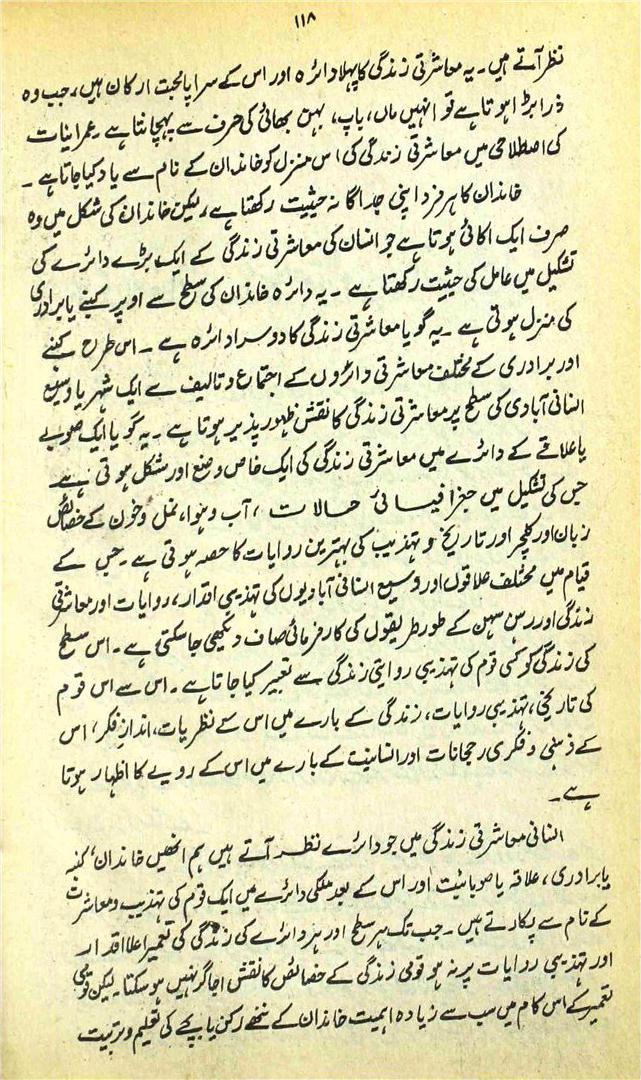 ۱۱۸
نظر آتے ہیں۔ یہ معاشرتی زندگی کا پہلا دائرہ اور اس کے سراپا محبت ارکان ہیں، جب وہ
ذرا بڑا ہوتا ہے تو انہیں ماں، باپ، بہن بھائی کی حرف سے پہچانتا ہے۔ عمرانیات
کی اصطلاحی میں معاشرتی زندگی کی اس منزل کو خاندان کے نام سے یاد کیا جاتا ہے۔
خاندان کا ہر فرد اپنی جداگانہ حیثیت رکھتا ہے، لیکن خاندان کی شکل میں وہ
صرف ایک اکائی ہوتا ہے جو انسان کی معاشرتی زندگی کے ایک بڑے دائرے کی
تشکیل میں عامل کی حیثیت رکھتا ہے۔ یہ دائرہ خاندان کی سطح سے اوپر کنبے یا برادری
کی منزل ہوتی ہے۔ یہ گویا معاشرتی زندگی کا دوسرا دائرہ ہے۔ اس طرح کنبے
اور برادری کے مختلف معاشرتی دائروں کے اجتماع و تالیف سے ایک شہر یا وسیع
انسانی آبادی کی سطح پر معاشرتی زندگی کا نقش ظہور پذیر ہوتا ہے۔ یہ گویا ایک صوبے
یا علاقے کے دائرے میں معاشرتی زندگی کی ایک خاص وضع اور شکل ہوتی ہے
جس کی تشکیل میں جغرافیائی حالات، آب و ہوا، نسل و خون کے خصائص
زبان اور کلچر اور تاریخ و تہذیب کی بہترین روایات کا حصہ ہوتی ہے۔ جس کے
قیام میں مختلف علاقوں اور وسیع انسانی آبادیوں کی تہذیبی اقدار، روایات اور معاشرتی
زندگی اور رہن سہن کے طور طریقوں کی کارفرمائی صاف دیکھی جا سکتی ہے۔ اس سطح
کی زندگی کو کسی قوم کی تہذیبی روایتی زندگی سے تعبیر کیا جاتا ہے۔ اس سے اس قوم
کی تاریخی، تہذیبی روایات، زندگی کے بارے میں اس کے نظریات، اندازِ فکر، اس
کے ذہنی و فکری رجحانات اور انسانیت کے بارے میں اس کے رویے کا اظہار ہوتا
ہے۔
انسانی معاشرتی زندگی میں جو دائرے نظر آتے ہیں ہم انھیں خاندان، کنبہ
یا برادری، علاقہ یا صوبائیت اور اس کے بعد ملکی دائرے میں ایک قوم کی تہذیب و معاشرت
کے نام سے پکارتے ہیں۔ جب تک ہر سطح اور ہر دائرے کی زندگی کی تعمیر اعلا اقدار
اور تہذیبی روایات پر نہ ہو قومی زندگی کے خصائص کا نقش اجاگر نہیں ہو سکتا۔ لیکن قومی
تعمیر کے اس کام میں سب سے زیادہ اہمیت خاندان کے ننھے رکن یا بچے کی تعلیم و تربیت